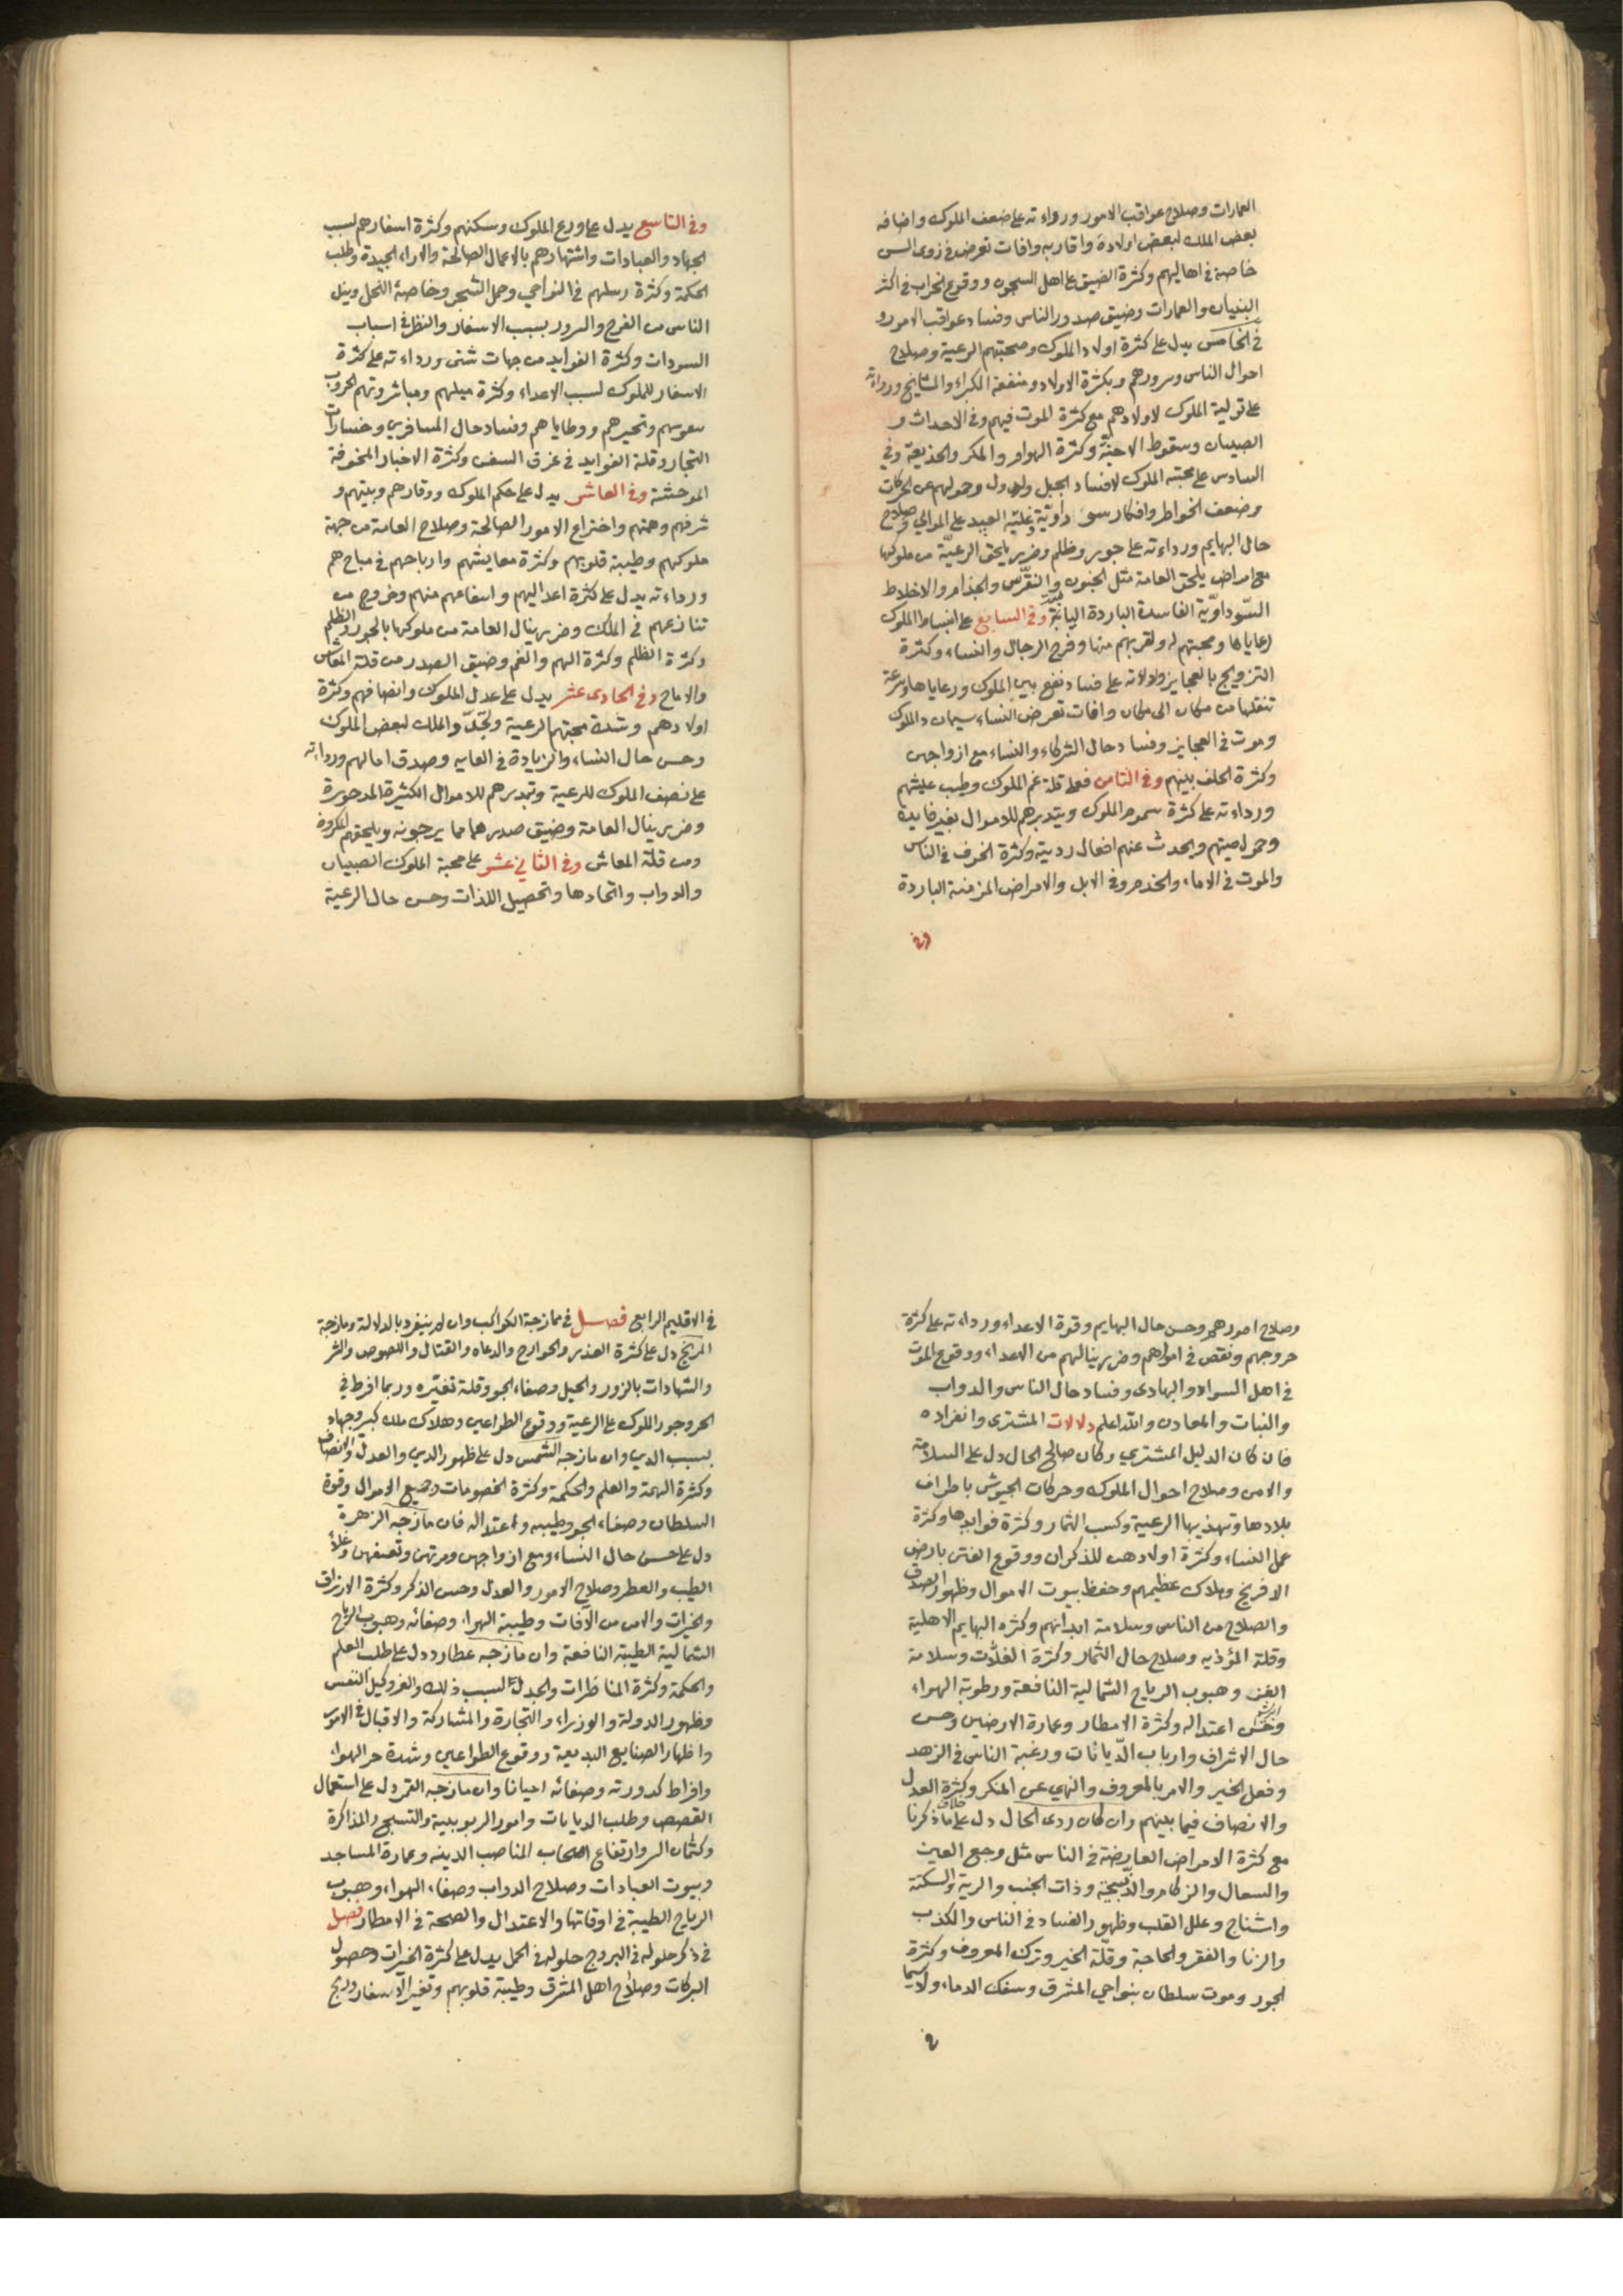 العمارات وصلاح عواقب الامور ورداءته على ضعف الملوك واضافه
بعض الملك لبعض اولاده واقاربه وافات تعرض في ذوى السن
خاصة في اهاليهم وكثرة الضيق على اهل السجون ووقوع الخراب في اكثر
البنيان والعمارات وضيق صدور الناس وفساد عواقب الامور و
في الخامس يدل على كثرة اولاد الملوك ومحبتهم الرعية وصلاح
احوال الناس وسرورهم وبكثرة الاولاد ومنفعة الكبراء والمشايخ ورداءته
على تولية الملوك لاولادهم مع كثرة الموت فيهم وفي الاحداث و
الصبيان وسقوط الاجنّة وكثرة الهوام والمكر والخديعة وفي
السادس على محبته الملوك لافساد الجبل وحولهم عن الحركات
وضعف الخواطر وافكار سوداويّة وغلبة العبيد على الموالي وصلاح
حال البهايم ورداءته على جور وظلم وضرر يلحق الرعيّة من ملوكها
مع امراض يلحق العامة مثل الجنون والنقرس والجذام والاخلاط
السّوداويّة الفاسدة الباردة اليابسة وفي السابع على انبساط الملوك
رعاياها ومحبتهم له ولقربهم منها وفرح الرجال والنساء وكثرة
التزويج بالعجايز ودلالاته على فساد نفع بين الملوك ورعاياها وسرعة
تنقلها من مكان الى مكان وافات تعرض النساء سيما والملوك
وموت في العجايز وفساد حال الشركاء والنساء مع ازواجهن
وكثرة الخلف بينهم وفي الثامن فعلى قلة غم الملوك وطيب عيشهم
ورداءته على كثرة سموم الملوك وتبذيرهم للاموال بغير فايدة
وحراصيتهم ويحدث عنهم افعال ردية وكثرة الخوف في الناس
والموت في الاماء والخدم وفي الابل والامراض المزمنة الباردة
وفي
وفي التاسع يدل على ورع الملوك وسكنهم وكثرة اسفارهم لسبب
الجهاد والعبادات واشتهارهم بالاعمال الصالحة والاراء الجيدة وطلب
الحكمة وكثرة رسلهم في النواحي وحمل الشجر وخاصة النخل وينل
الناس من الفرح والسرور بسبب الاسفار والنظر في اسباب
السودات وكثرة الفوايد من جهات شتى ورداءته على كثرة
الاسفار للملوك لسبب الاعداء وكثرة ميلهم ومباشرتهم الحروب
بنفوسهم وتحيرهم ووطاياهم وفساد حال المسافرين وخسارات
التجار وقلة الفوايد في غرق السفن وكثرة الاخبار المخوفة
الموحشة وفي العاشر يدل على حكم الملوك ووقارهم وبيتهم و
شرفهم وهمتهم واختراع الامور الصالحة وصلاح العامة من جهة
ملوكهم وطيبة قلوبهم وكثرة معايشهم وارباحهم في مباحهم
ورداءته يدل على كثرة اعدائهم واسفاعهم منهم وخروج من
تنازعهم في الملك وضرر ينال العامة من ملوكها بالجور والظلم
وكثرة الظلم وكثرة الهم والغم وضيق الصدر من قلة المعاش
والارباح وفي الحادى عشر يدل على عدل الملوك وانصافهم وكثرة
اولادهم وشدة محبتهم الرعية وتجدد الملك لبعض الملوك
وحسن حال النساء والزيادة في الغايه وصدق امالهم ورداءته
على نصف الملوك للرعية وتبذيرهم للاموال الكثيرة المدخورة
وضرر ينال العامة وضيق صدرهما مما يرجونه ويلحقهم المكروه
ومن قلة المعاش وفي الثاني عشر على محبة الملوك الصبيان
والدواب واتحادها وتحصيل اللذات وحسن حال الرعية
وصلاح امورهم وحسن حال البهايم وقوة الاعداء ورداءته على كثرة
خروجهم ونقص في اموالهم وضرر ينالهم من الاعداء ووقوع الموت
في اهل السواد والبهادى وفساد حال الناس والدواب
والنبات والمعادن والله اعلم دلالات المشترى وانفراده
فان كان الدليل المشتري وكان صالح الحال دل على السلامة
والامن وصلاح احوال الملوك وحركات الجيوش باطراف
بلادها وتهذيبها الرعية وكسب الثمار وكثرة فوايدها وكثرة
عمل النساء وكثرة اولادهن للذكران ووقوع الفتن بارض
الافرنج وهلاك عظيمهم وحفظ بيوت الاموال وظهور الصدق
والصلاح من الناس وسلامة ابدانهم وكثره البهايم الاهلية
وقلة المؤذيه وصلاح حال الثمار وكثرة الغلّات وسلامة
وهبوب الرياح الشمالية النافعة ورطوبة الهواء
وحسن اعتداله وكثرة الامطار وعمارة الارضين وحسن
حال الاشراف وارباب الدّيانات ورغبة الناس في الزهد
وفعل الخير والامر بالمعروف والنهي عن المنكر وكثرة العدل
والانصاف فيما بينهم وان كان ردى الحال دل على خلاف ماذكرنا
مع كثرة الامراض العارضة في الناس مثل وجع العين
والسعال والزكام والذّبحة وذات الجنب والرية والسكتة
واشناج وعلل القلب وظهور الفساد في الناس والكذب
والزنا والفقر والحاجة وقلّة الخير وترك المعروف وكثرة
الجور وموت سلطان بنواحي المشرق وسفك الدماء ولاسيما
في
في الاقليم الرابع فصل في ممازجة الكواكب وان لم ينفرد بالدلالة ومازجة
المريخ دل على كثرة الغدر والخوارج والدعاه والقتال واللصوص والشر
والشهادات بالزور والحيل وصفاء الجو وقلة تغيّره وربما افرط في
الحر وجور الملوك على الرعية ووقوع الطواعين وهلاك ملك كبير وجهاد
بسبب الدين وان مازجه الشمس دل على ظهور الدين والعدل والانصاف
وكثرة الهمة والعلم والحكمة وكثرة الخصومات وجميع الاموال وقوة
السلطان وصفاء الجو وطيبه واعتداله فان مازجه الزهرة
دل على حسن حال النساء ومع ازواجهن ومرتهن وتعسفهن وغلاء
الطيب والعطر وصلاح الامور والعدل وحسن الذكر وكثرة الارزاق
والخيرات والامن من الآفات وطيبة الهواء وصفائه وهبوب الرياح
الشمالية الطيبة النافعة وان مازجه عطارد دل على طلب العلم
والحكمة وكثرة المناظرات والجدل لسبب ذلك والغروكيل النفس
وظهور الدولة والوزراء والتجارة والمشاركة والاقبال في الامور
واظهار الصنايع البديعة ووقوع الطواعين وشدة حر الهواء
وافراط كدورته وصفائه احيانا وان مازجه القمر دل على استعمال
القصص وطلب الديانات وامور الربوبية والتسبيح والمذاكرة
وكتمان السر وارتفاع اصحاب المناصب الدينه وعمارة المساجد
وبيوت العبادات وصلاح الدواب وصفاء الهواء وهبوب
الرياح الطيبة في اوقاتها والاعتدال والصحة في الامطار فصل
في ذكر حلوله في البروج حلوله في الحمل يدل على كثرة الخيرات وحصول
البركات وصلاح اهل المشرق وطيبة قلوبهم وتغير الاسفار وربح